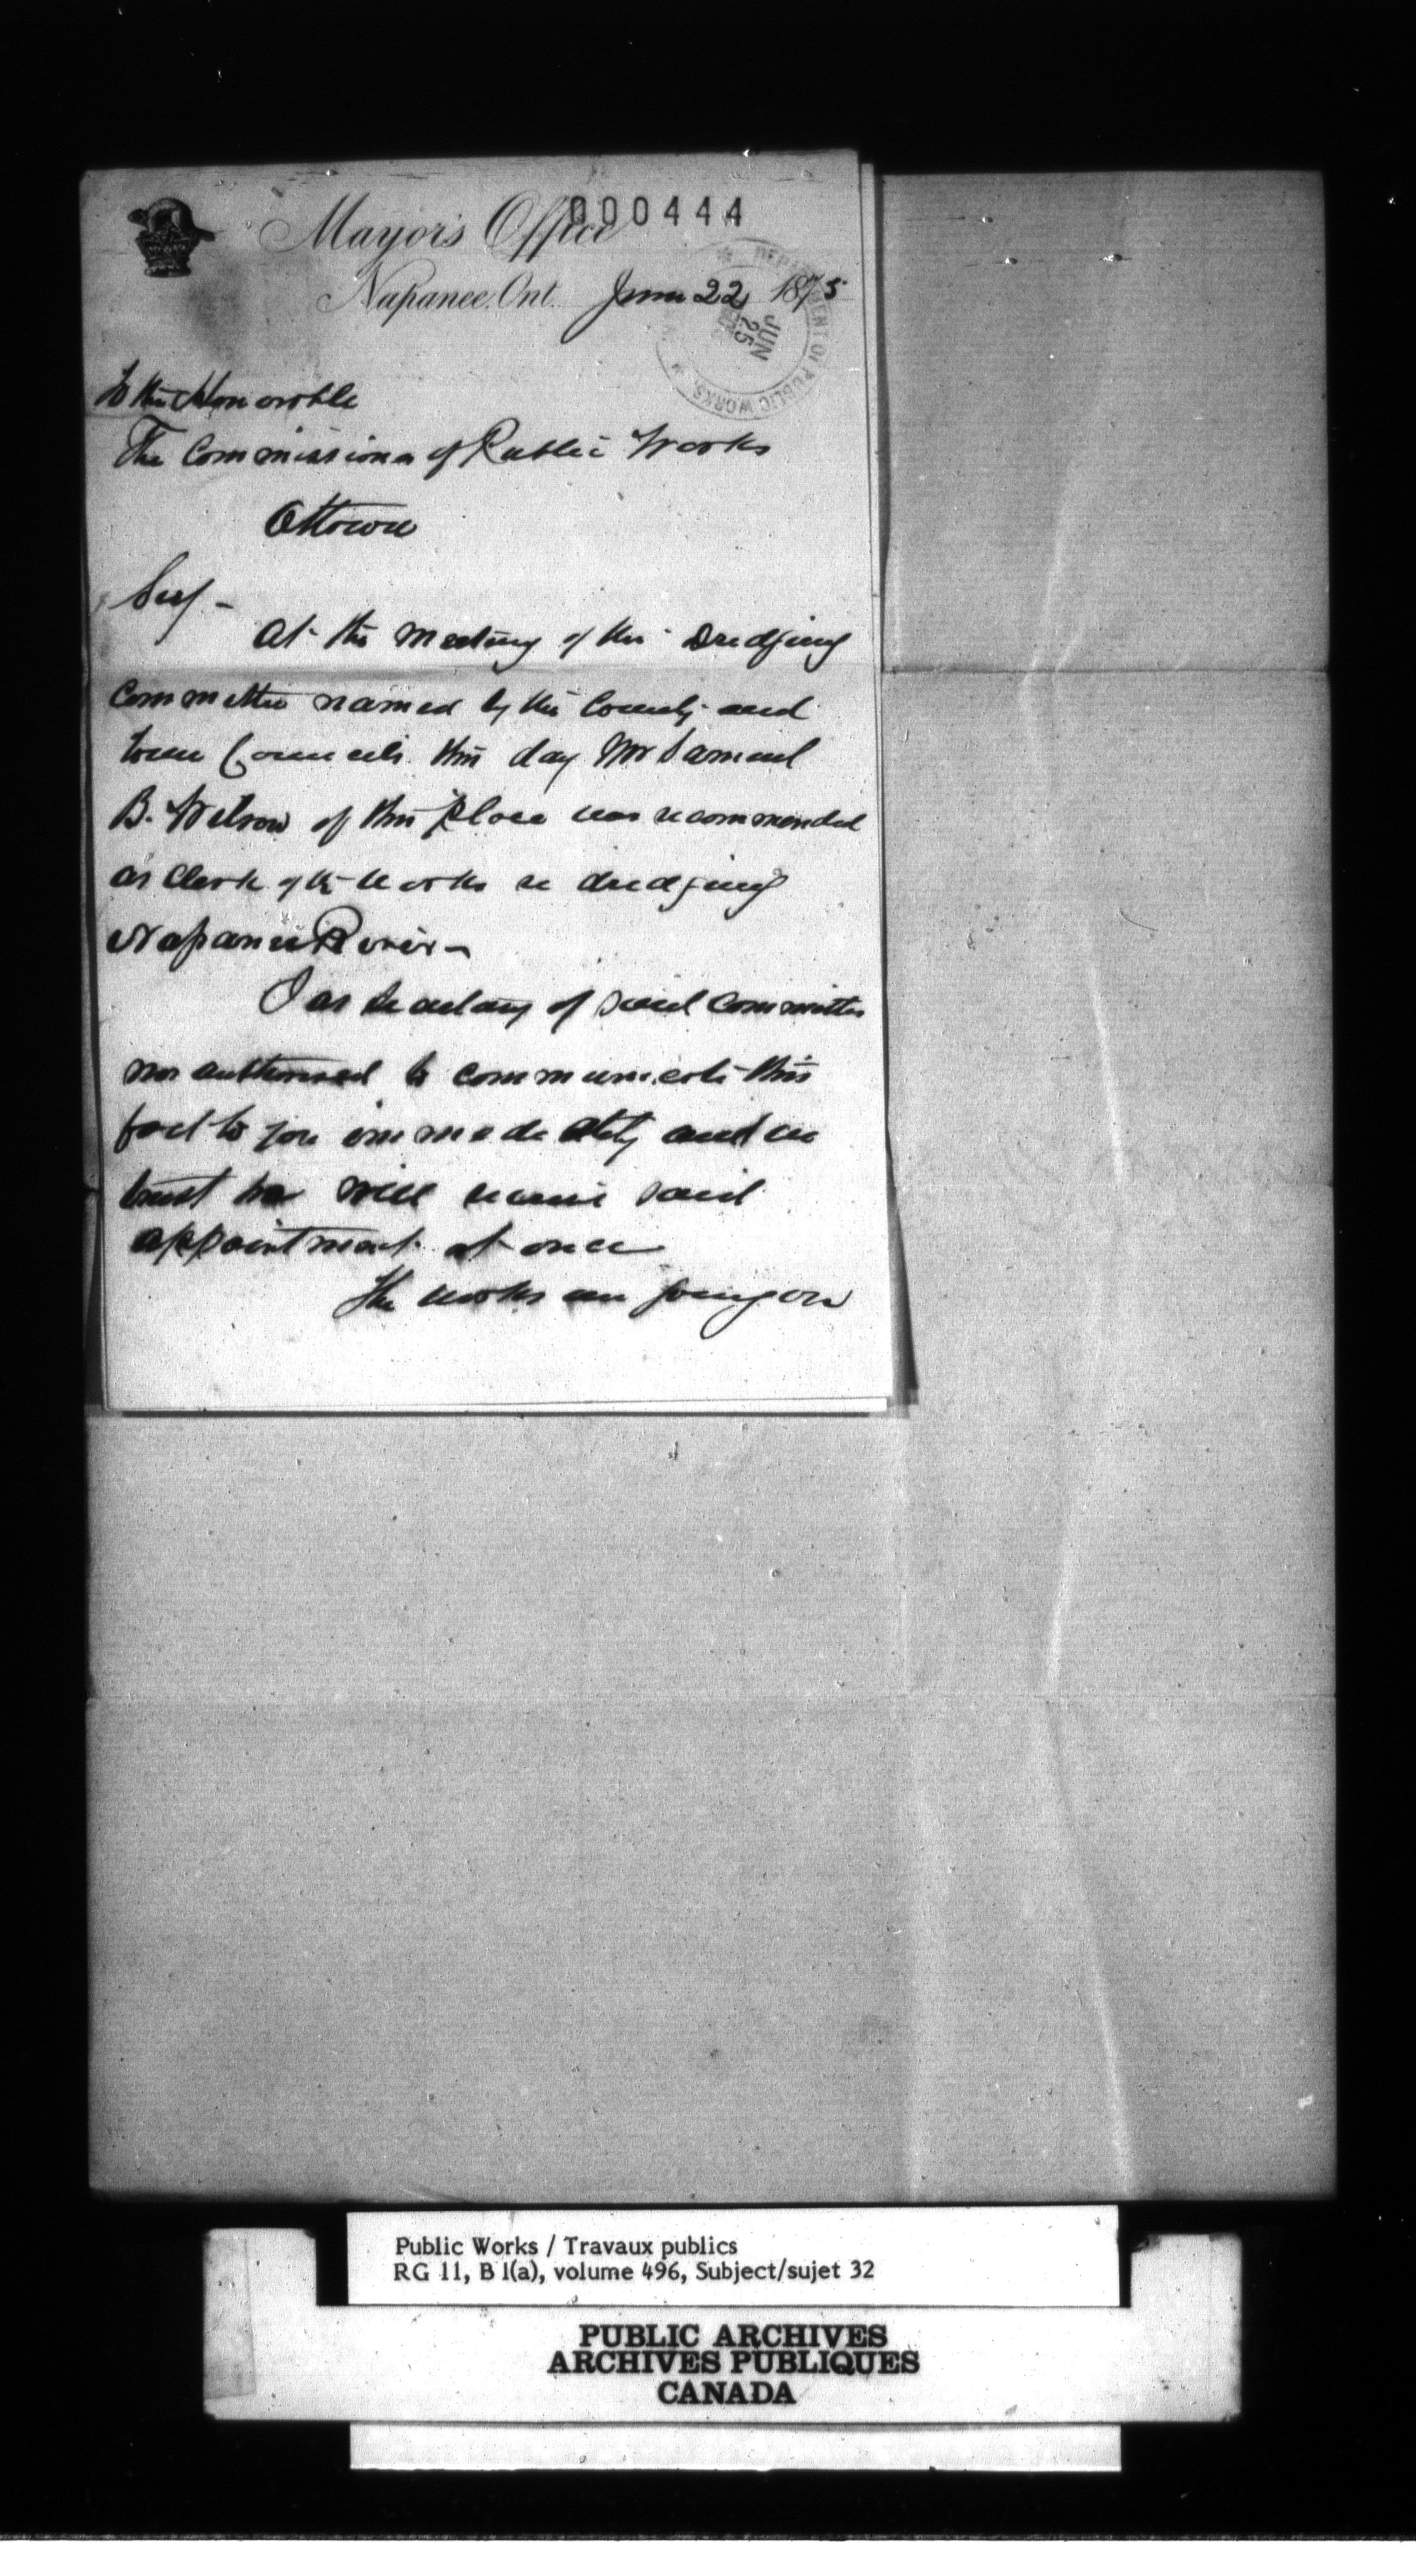 000444
Mayor's Office
Napanee, Ont. June 22 1875
DEPARTMENT OF PUBLIC WORKS
JUN 25
To the Honorable
The Commissioner of Public Works
Ottawa
Sir -
At the meeting of the Dredging
Committee named by the County and
town Councils this day Mr Samuel
B. Wilson of this place was recommended
as Clerk of the works re dredging
Napanee River -
I as Secretary of said Committee
was authorised to communicate this
fact to you immediately and we
trust he will receive said
appointment at once
The works are going on
Public Works / Travaux publics
RG 11, B 1(a), volume 496, Subject/sujet 32
PUBLIC ARCHIVES
ARCHIVES PUBLIQUES
CANADA